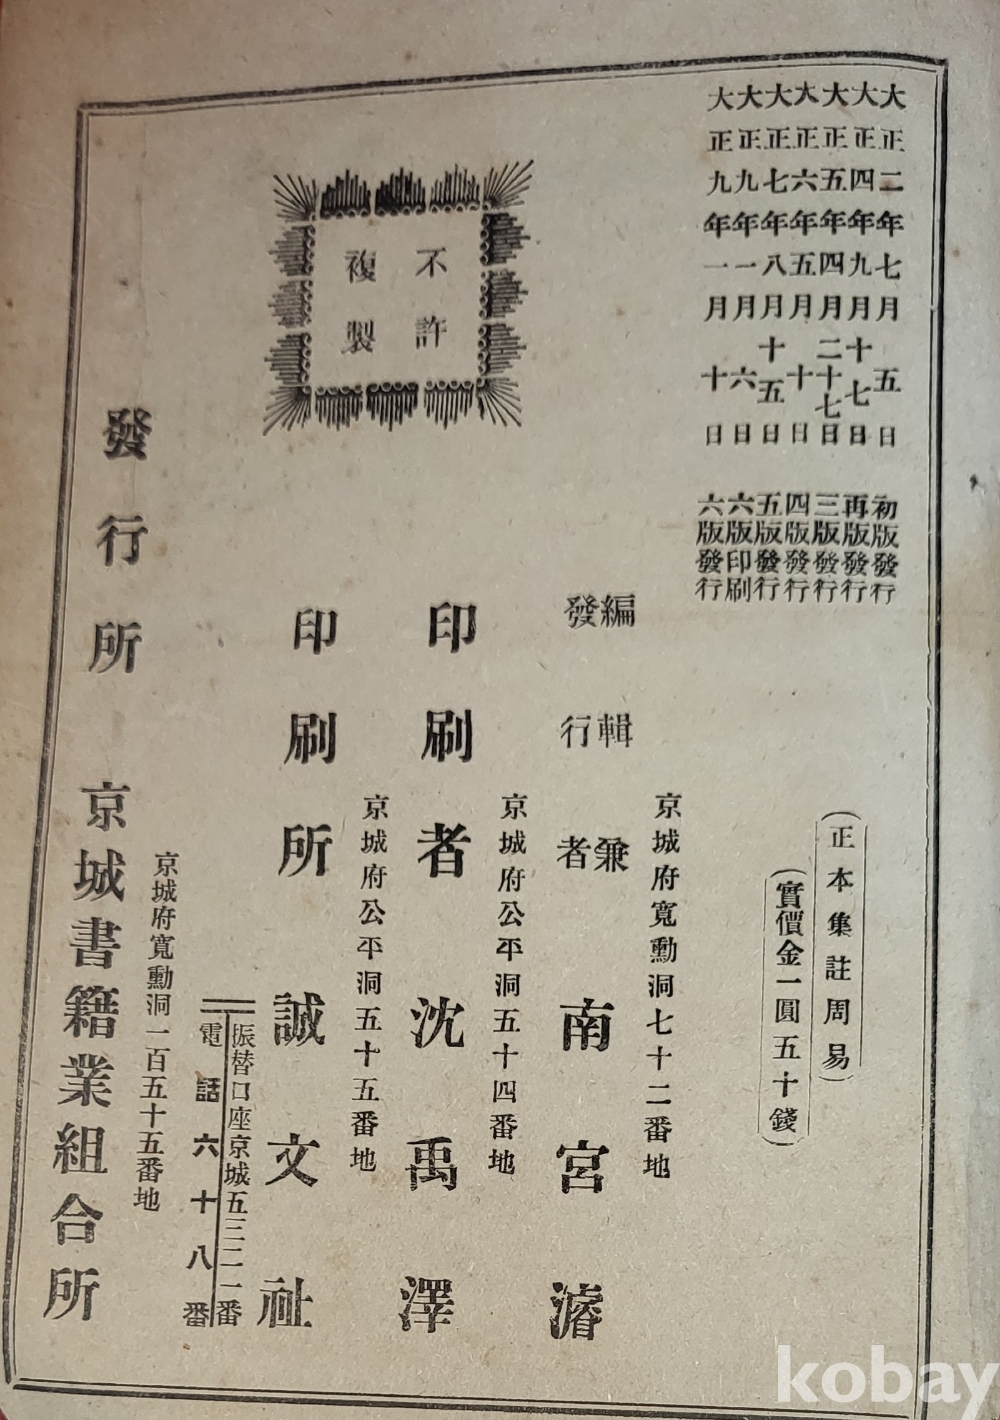 大正二年七月五日 初版發行
大正四年九月十七日 再版發行
大正五年四月二十七日 三版發行
大正六年五月十日 四版發行
大正七年八月十五日 五版發行
大正九年一月六日 六版印刷
大正九年一月十日 六版發行
(正本集註周易)
(實價金一圓五十錢)
不許
複製
京城府寬勳洞七十二番地
編輯兼
發行者
南宮濬
京城府公平洞五十四番地
印刷者 沈禹澤
京城府公平洞五十五番地
印刷所 誠文社
振替口座京城五三二一番
電話六十八番
京城府寬勳洞一百五十五番地
發行所 京城書籍業組合所
kobay